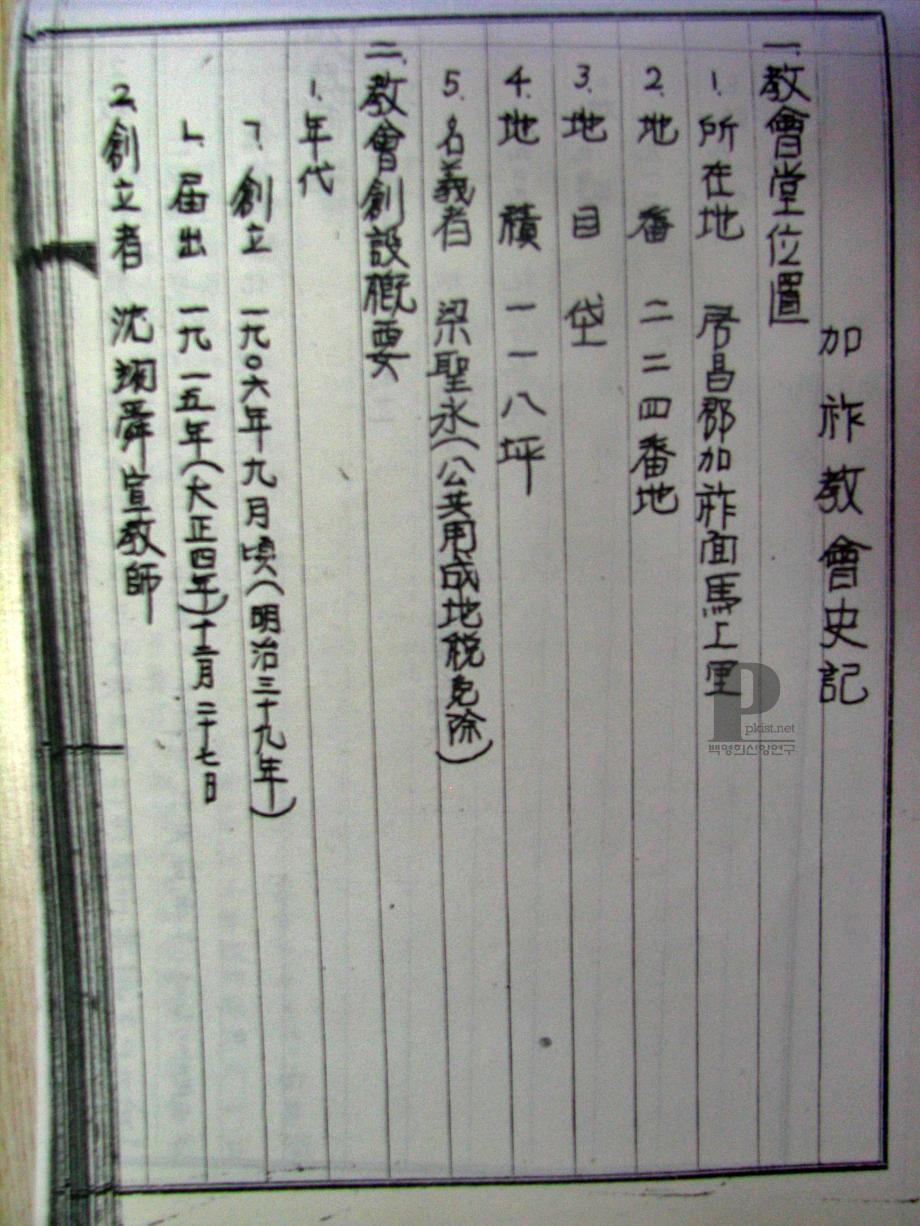 加祚教會史記
一. 教會堂位置
1. 所在地 居昌郡加祚面馬上里
2. 地番 二二四番地
3. 地目 垈
4. 地積 一一八坪
5. 名義者 梁聖永(公共用成地稅免除)
二. 教會創設槪要
1. 年代
ㄱ. 創立 一九〇六年九月頃(明治三十九年)
ㄴ. 届出 一九一五年(大正四年)十二月二十七日
2. 創立者 沈翊舜宣教師
pkist.net
백영희신앙연구